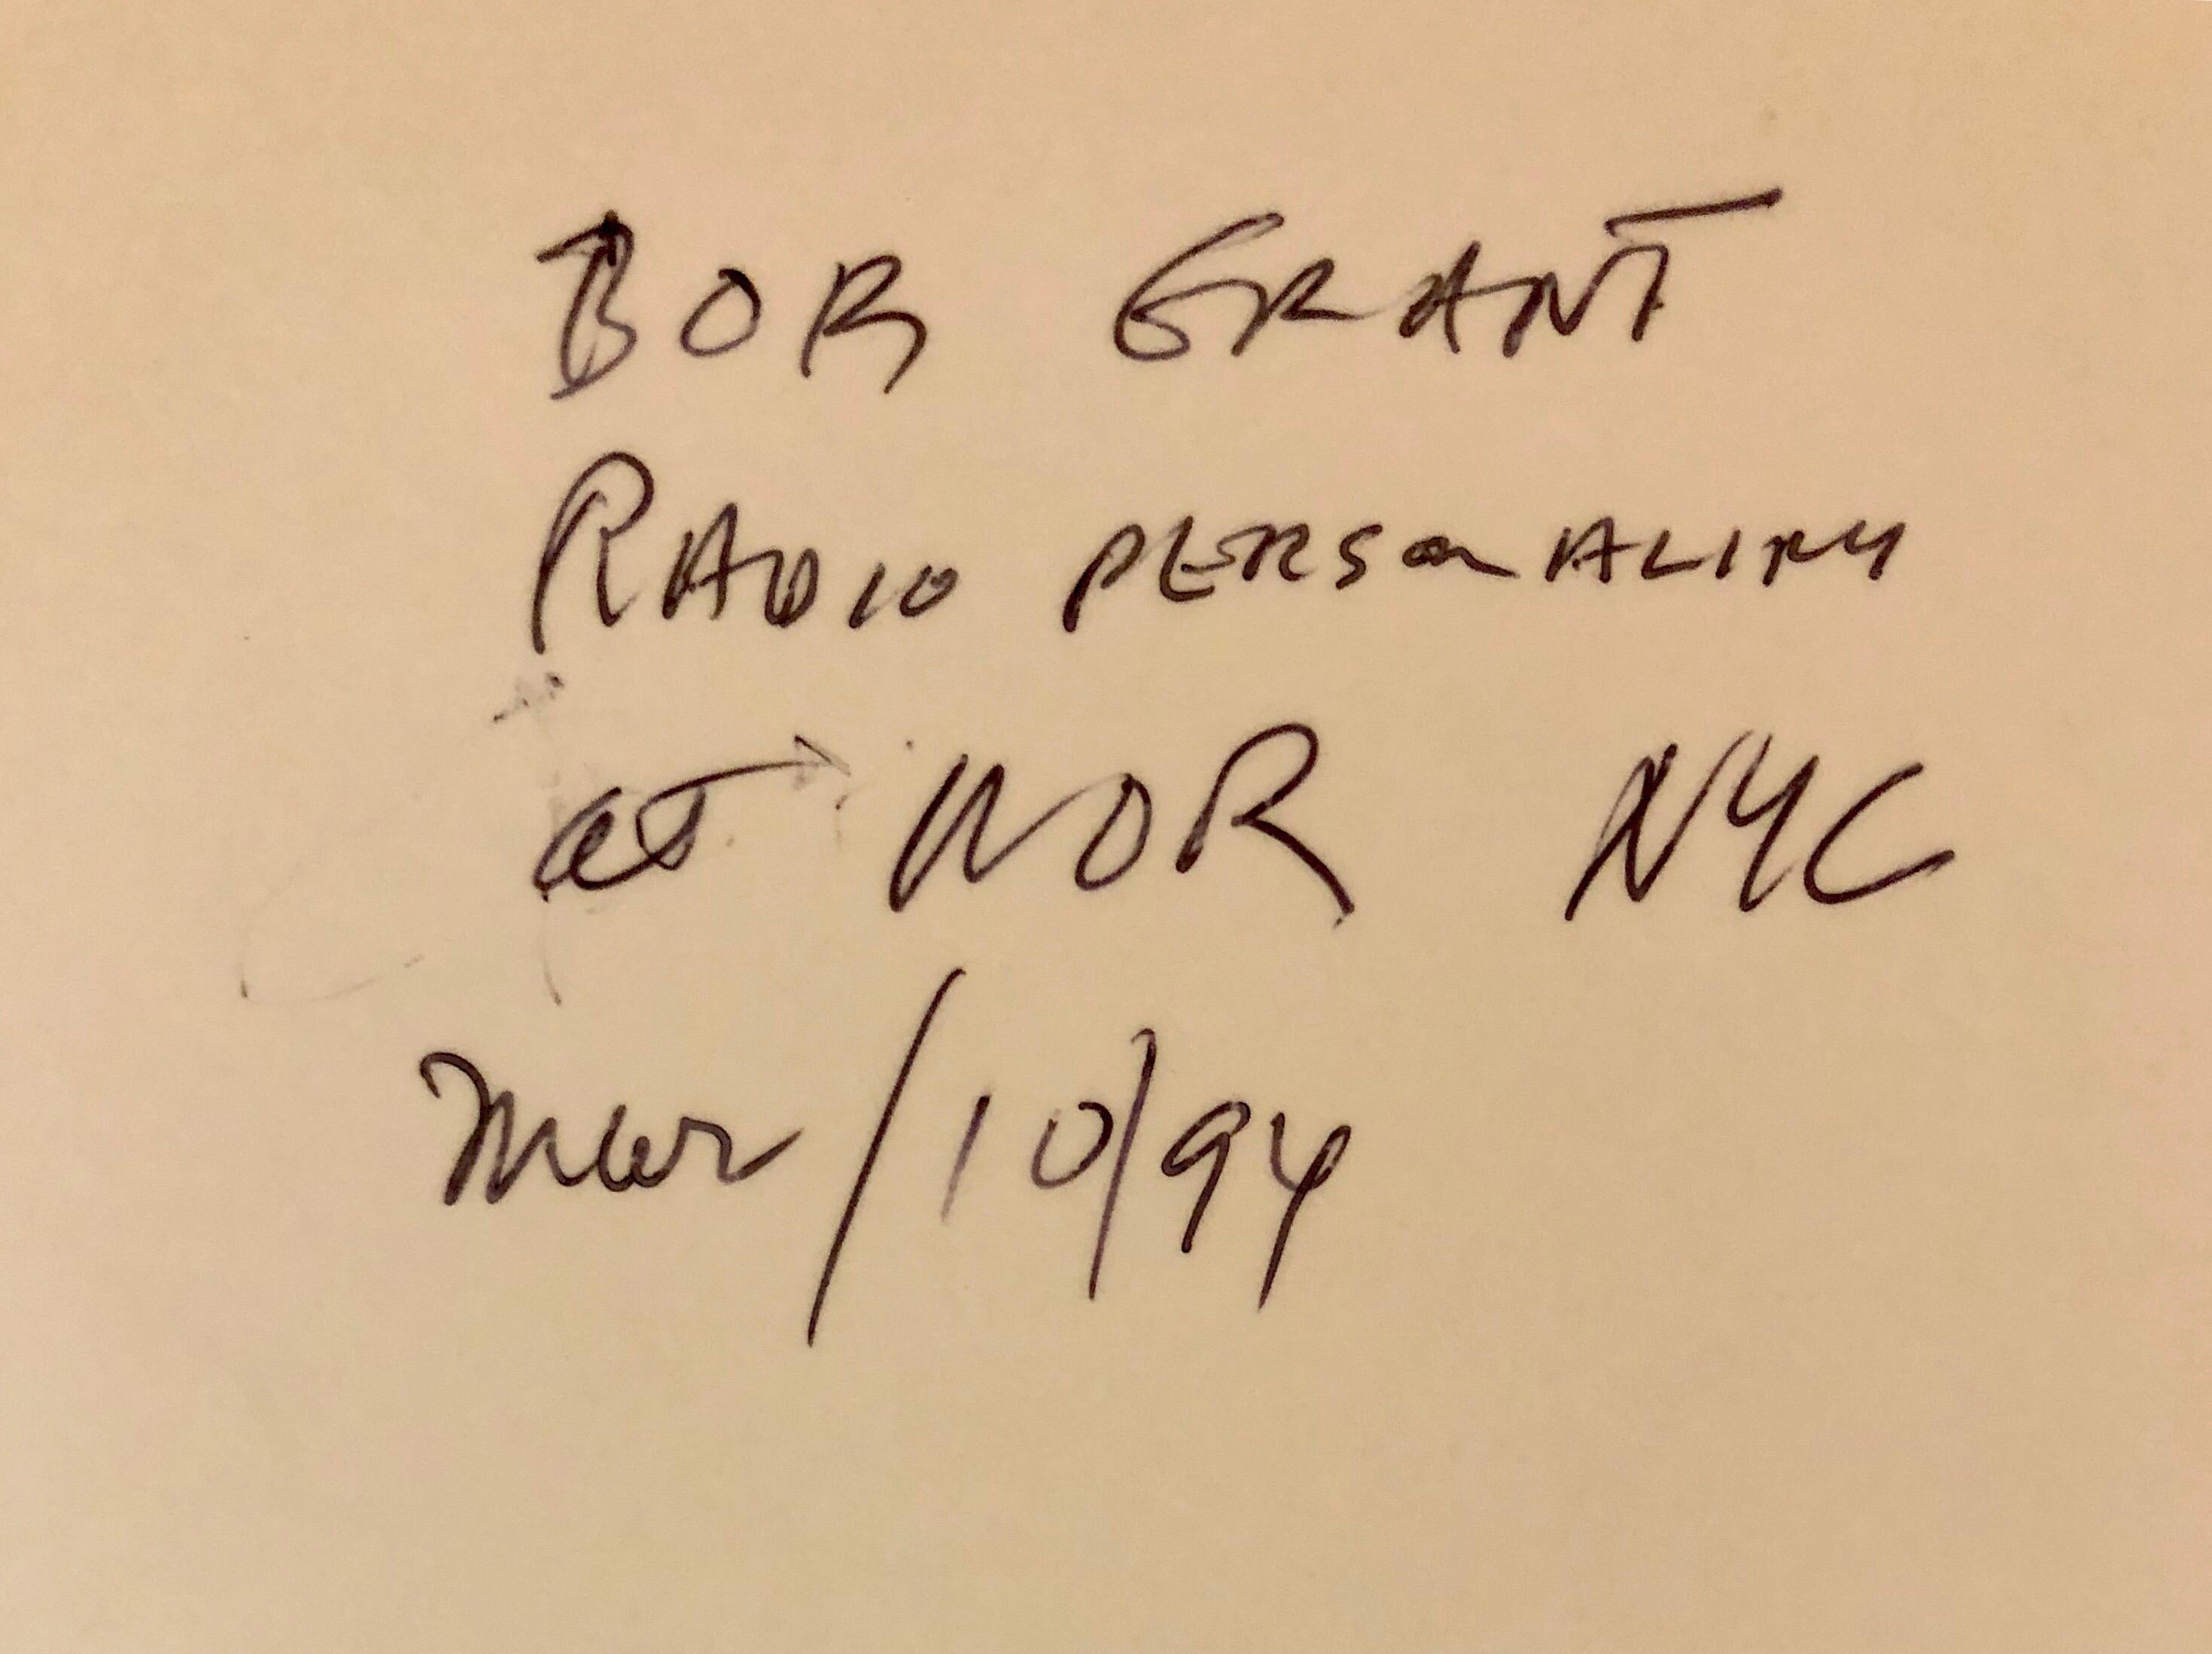 BOB GRANT
RADIO PERSONALITY
at WOR NYC
Mar/10/94